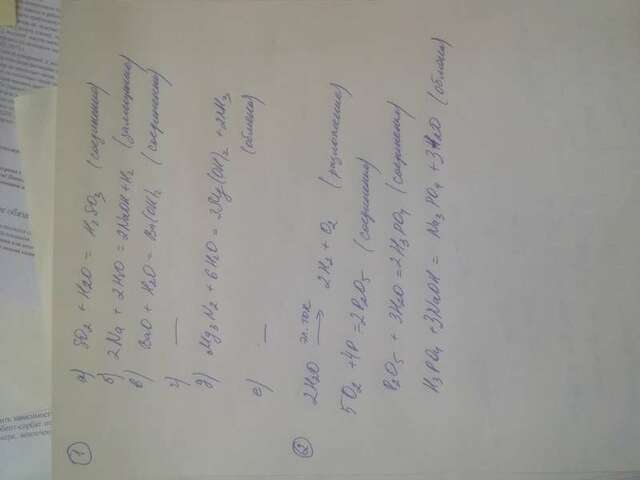 1
а) SO2 + H2O = H2SO3 (соединения)
б) 2Na + 2H2O = 2NaOH + H2 (замещения)
в) BaO + H2O = Ba(OH)2 (соединения)
г) —
д) Mg3N2 + 6H2O = 3Mg(OH)2 + 2NH3
(обмена)
е) —
2
2H2O эл. ток → 2H2 + O2 (разложения)
5O2 + 4P = 2P2O5 (соединения)
P2O5 + 3H2O = 2H3PO4 (соединения)
H3PO4 + 3NaOH = Na3PO4 + 3H2O (обмена)